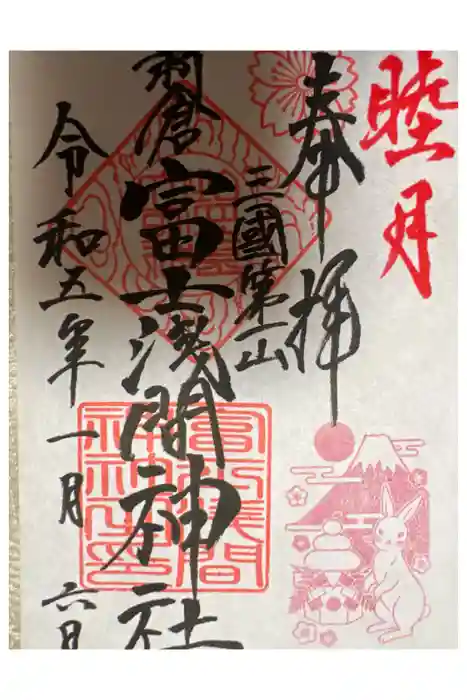 睦月
奉拝
三國第一山
羽倉
富士浅間神社
令和五年一月六日
富士浅間神社之印